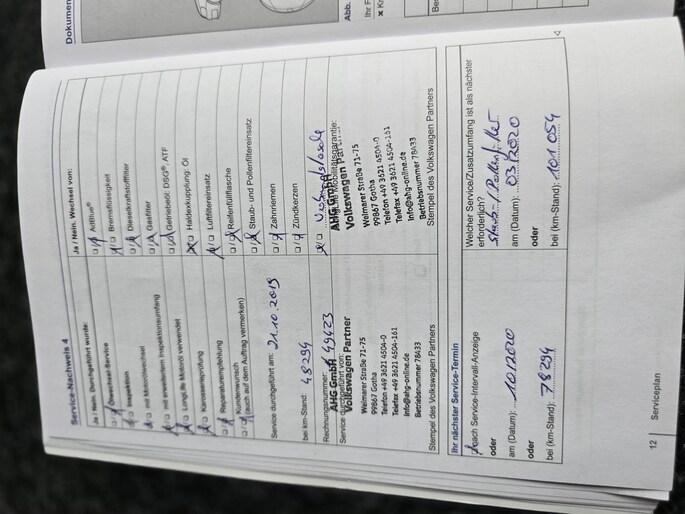 Dokumen
Abb.
Ihr F
Service-Nachweis 4
Ja / Nein. Durchgeführt wurde:
Ölwechsel-Service
Inspektion
mit Motorölwechsel
mit erweitertem Inspektionsumfang
LongLife Motoröl verwendet
Karosserieprüfung
Reparaturempfehlung
Kundenwunsch
(auch auf dem Auftrag vermerken)
Service durchgeführt am: 21.10.2019
bei km-Stand: 48294
Rechnungsnummer: 49423
Service durchgeführt von:
AHG GmbH
Volkswagen Partner
Weimarer Straße 71-75
99867 Gotha
Telefon +49 3621 4504-0
Telefax +49 3621 4504-161
info@ahg-online.de
Betriebsnummer 78433
Stempel des Volkswagen Partners
Ja / Nein. Wechsel von:
AdBlue®
Bremsflüssigkeit
Dieselkraftstofffilter
Gasfilter
Getriebeöl: DSG®, ATF
Haldexkupplung: Öl
Luftfiltereinsatz
Reifenfüllflasche
Staub- und Pollenfiltereinsatz
Zahnriemen
Zündkerzen
Mobilitätsgarantie:
AHG GmbH
Volkswagen Partner
Weimarer Straße 71-75
99867 Gotha
Telefon +49 3621 4504-0
Telefax +49 3621 4504-161
info@ahg-online.de
Betriebsnummer 78433
Stempel des Volkswagen Partners
Ihr nächster Service-Termin
nach Service-Intervall-Anzeige
oder
am (Datum): 10/2020
oder
bei (km-Stand): 78294
Welcher Service/Zusatzumfang ist als nächster
erforderlich?
Staub-/Pollenfilter
am (Datum): 03/2020
oder
bei (km-Stand): 101.054
12 Serviceplan